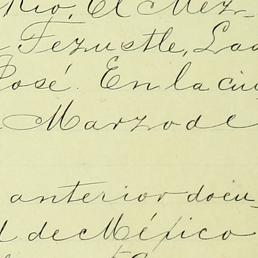 Rio, El Mez-
Tezustle, Lad
José. En la ciu
Marzo de
anterior docu
d de Méjico